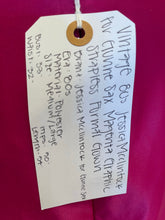 Vintage 80s Jessica McClintock
for Gunne Sax Magenta
Strapless Formal Gown
Brand: Jessica McClintock for Gunne Sax
Era: 80s
Material: Polyester
Size: Medium/Large
Bust: Hips:
Waist: 32" Length: